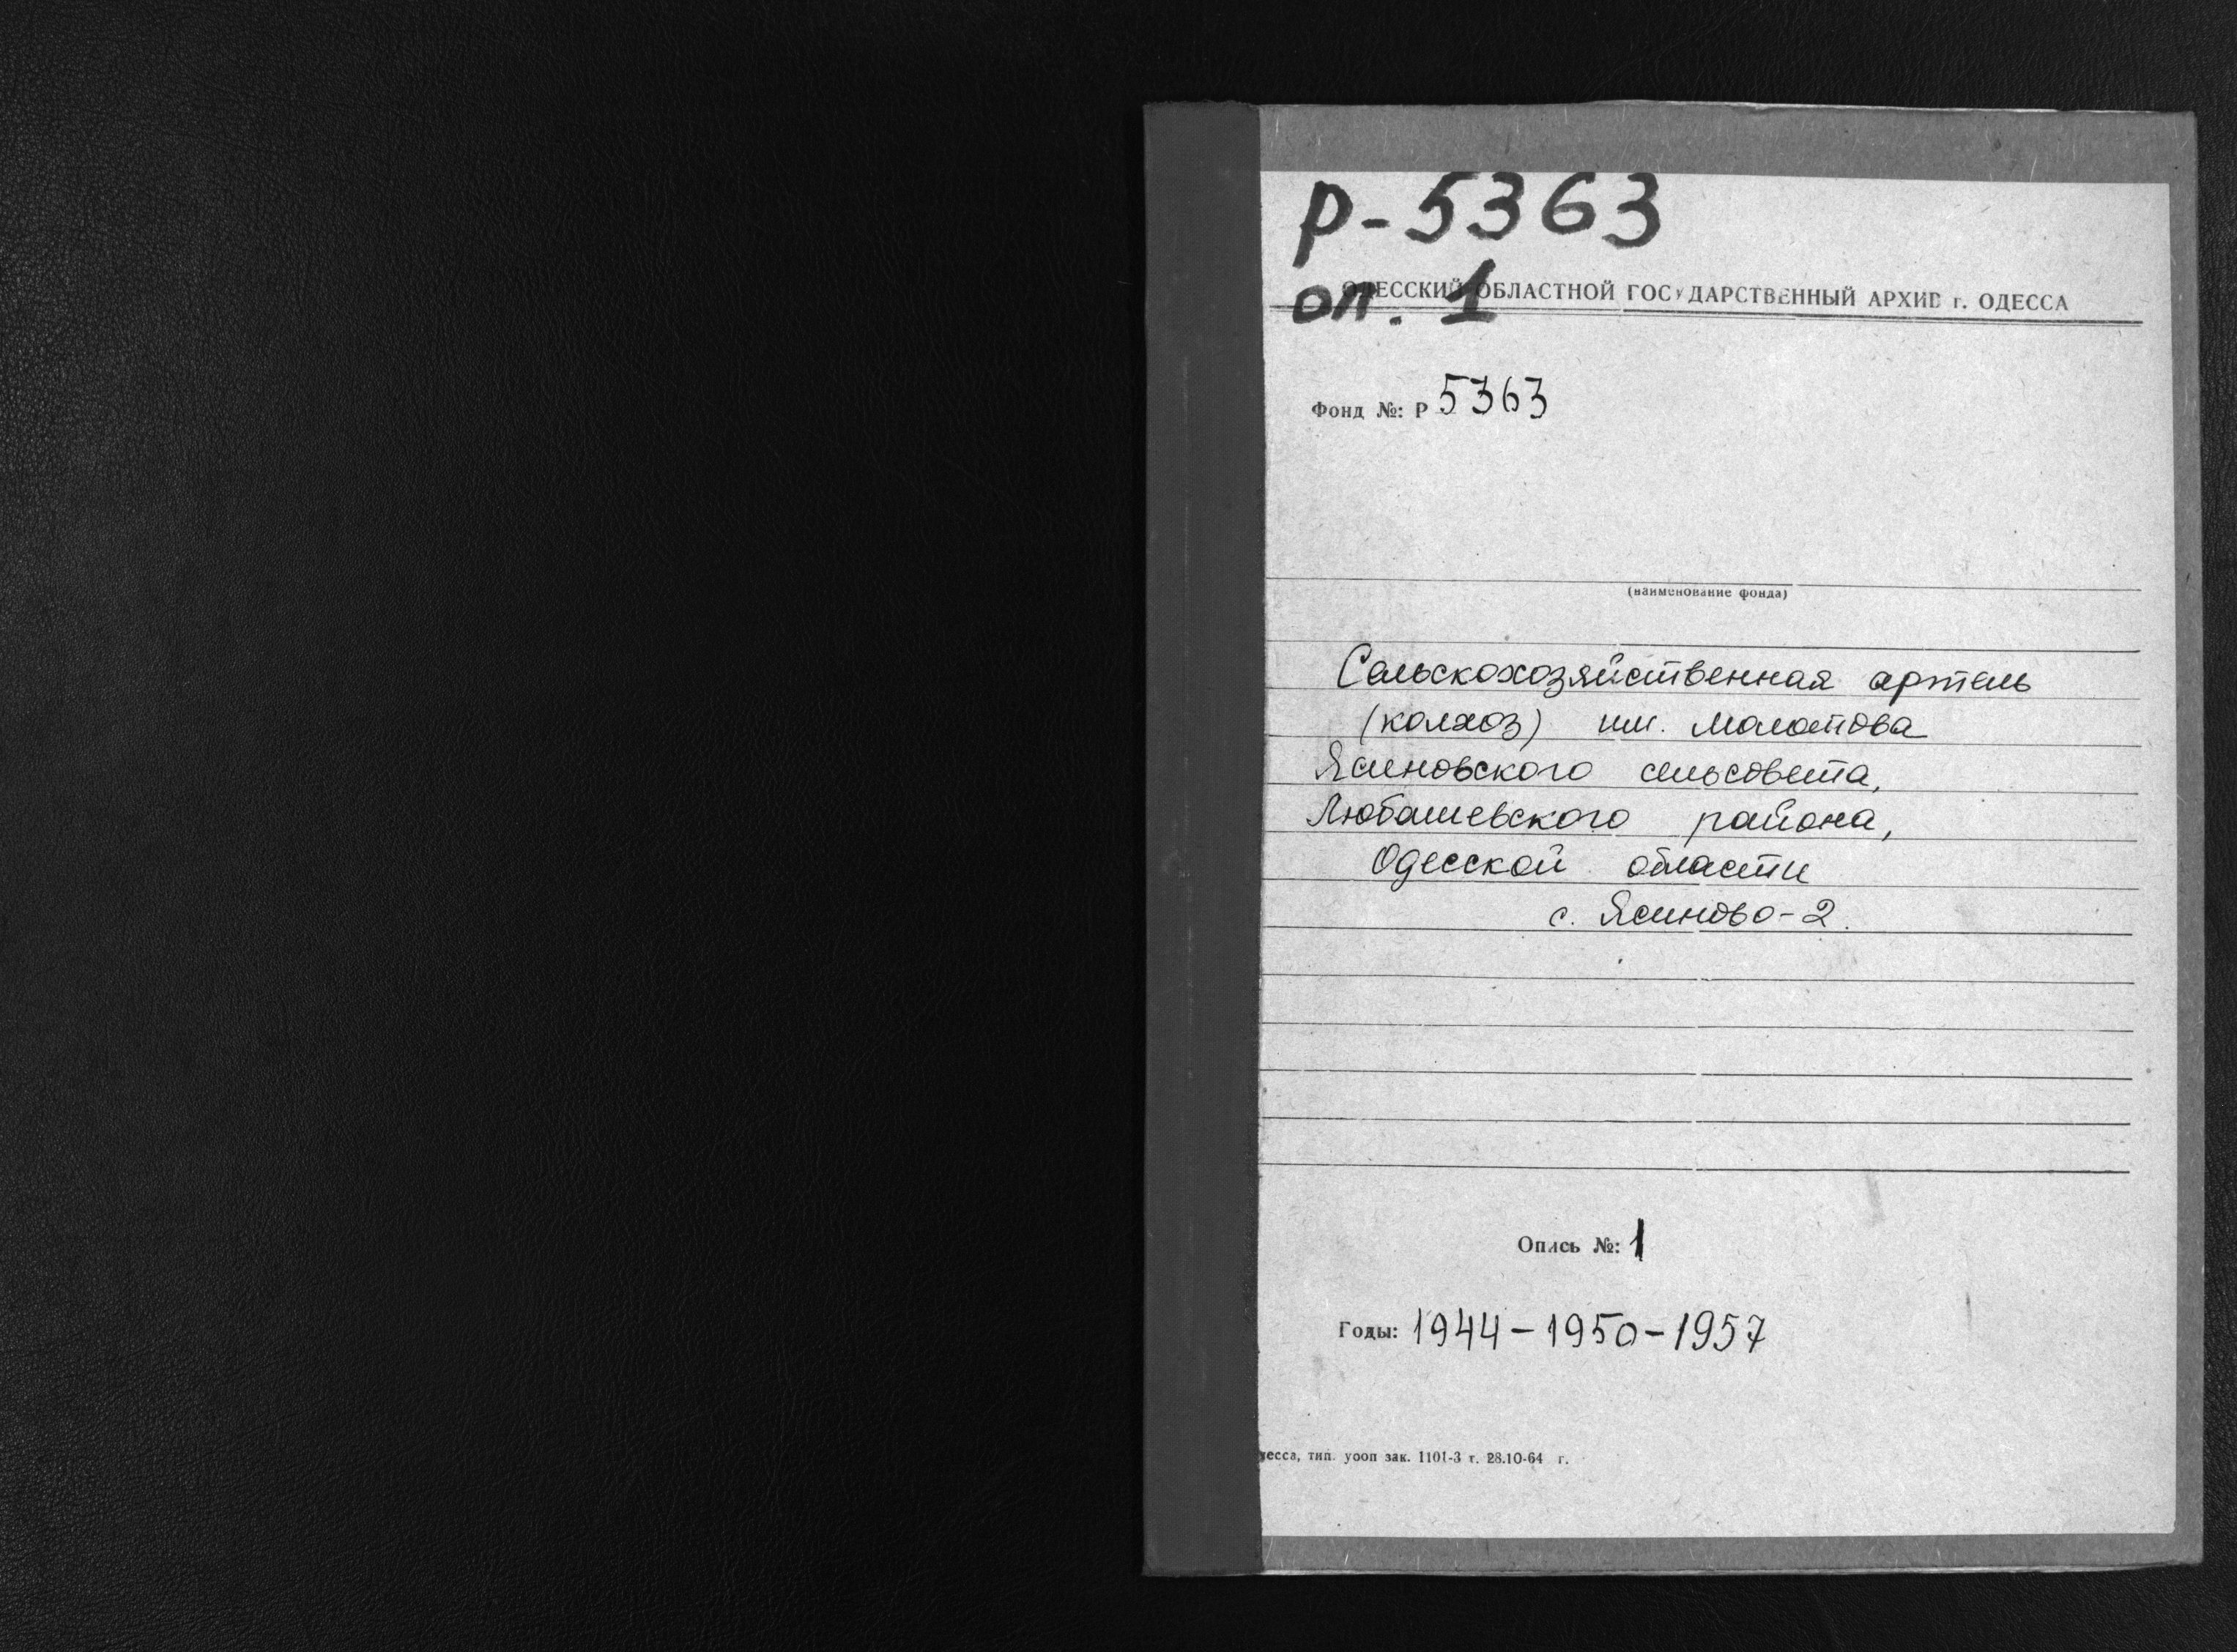 р-5363
оп. 1
ОДЕССКИЙ ОБЛАСТНОЙ ГОСУДАРСТВЕННЫЙ АРХИВ г. ОДЕССА
Фонд №: Р 5363
(наименование фонда)
Сельскохозяйственная артель
(колхоз) им. Молотова
Ясеновского сельсовета,
Любашевского района,
Одесской области
с. Ясиново-2.
Опись №: 1
Годы: 1944-1950-1957
десса, тип. уооп зак. 1101-3 т. 28.10-64 г.